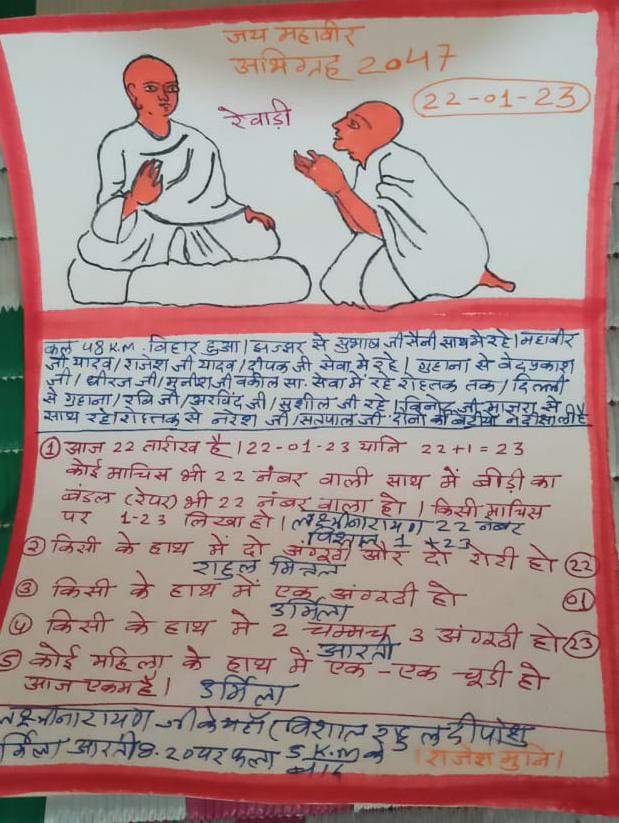 जय महावीर
अभिग्रह 2047
22-01-23
रेवाड़ी
कुल 48 K.M. विहार हुआ। झज्जर से सुभाष जी सैनी साथ मे रहे। महावीर
जी यादव/राजेश जी यादव/दीपक जी सेवा मे रहे। गुहाना से वेदप्रकाश
जी/धीरज जी/मुनीश जी वकील सा. सेवा में रहे रोहतक तक/दिल्ली
से गुहाना/रवि जी/अरविंद जी/सुशील जी रहे। विनोद जी माजरा से
साथ रहे। रोहतक से नरेश जी/सतपाल जी दोनो की
① आज 22 तारीख है। 22-01-23 यानि 22+1=23
कोई माचिस भी 22 नंबर वाली साथ में बीड़ी का
बंडल (रेपर) भी 22 नंबर वाला हो। किसी माचिस
पर 1-23 लिखा हो। लक्ष्मीनारायण 22 नंबर
विशाल 1+23
② किसी के हाथ में दो अंगूठी और दो रोटी हो 22
राहुल मित्तल
③ किसी के हाथ में एक अंगूठी हो 01
उर्मिला
④ किसी के हाथ मे 2 चम्मच 3 अंगूठी हो 23
आरती
5 कोई महिला के हाथ में एक-एक चूडी हो
आज एकम है। उर्मिला
लक्ष्मीनारायण जी के यहाँ (विशाल राहुल दीपांशु
र्मिला आरती घ. 20 पर फला 5 K.M के
बाद |राजेश मुनि|